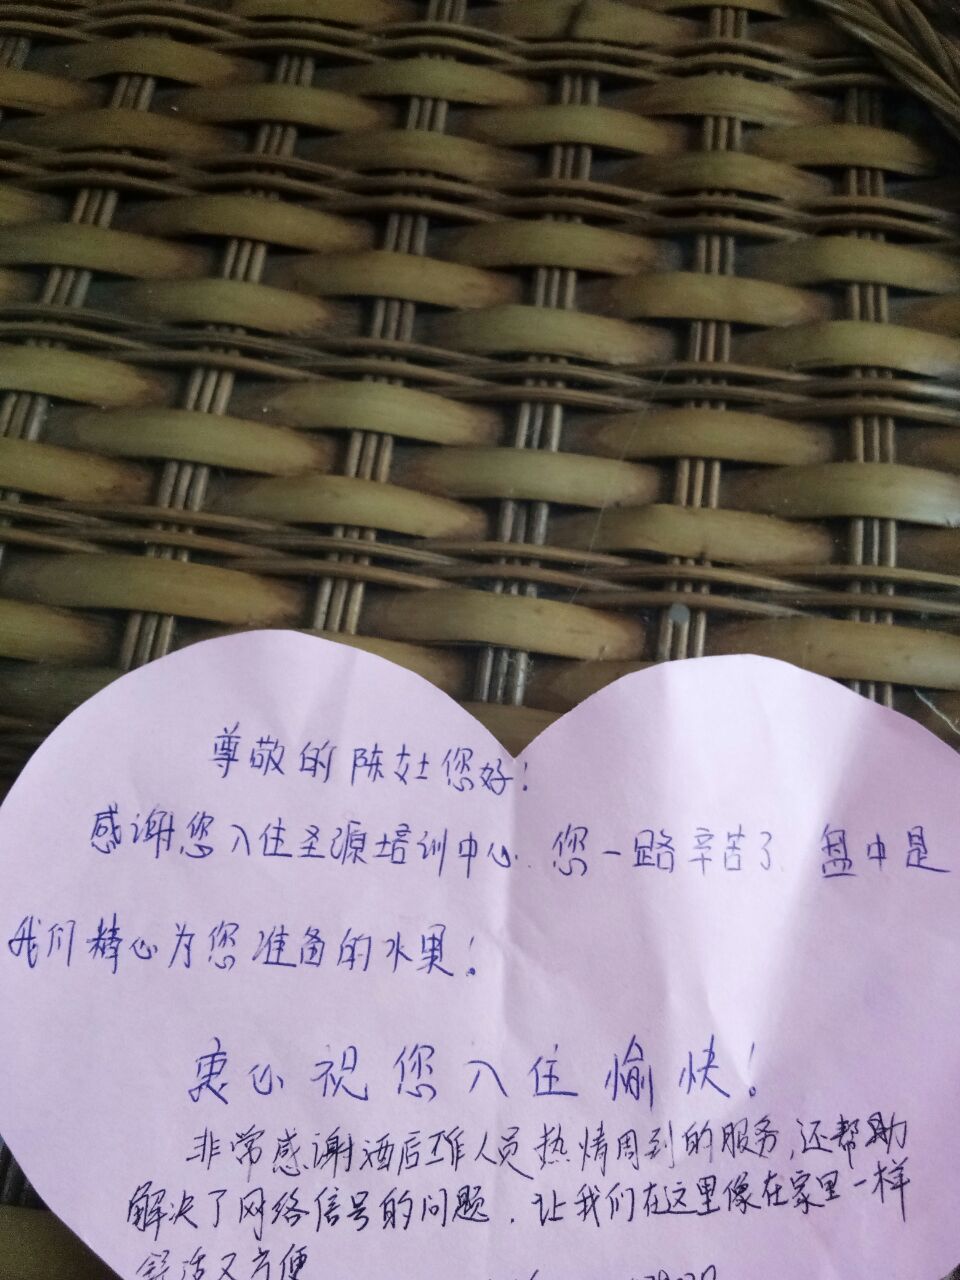 尊敬的陈女士您好!
感谢您入住圣源培训中心.您一路辛苦了.盘中是
我们精心为您准备的水果!
衷心祝您入住愉快!
非常感谢酒店工作人员热情周到的服务,还帮助
解决了网络信号的问题.让我们在这里像在家里一样
舒适又方便